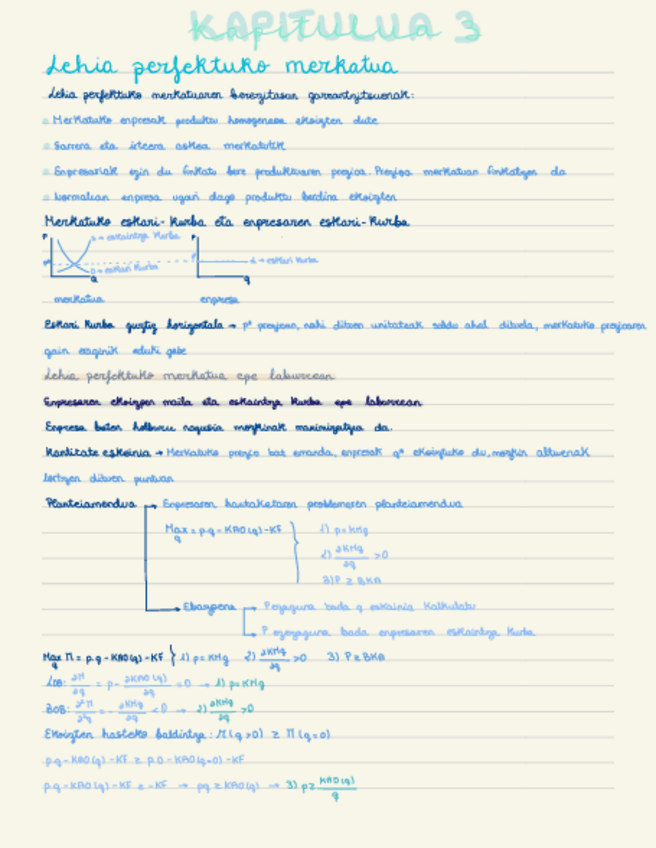 KAPITULUA 3
Lehia perfektuko merkatua
Lehia perfektuko merkatuaren berezitasun garrantzitsuenak:
Merkatuko enpresak produktu homogeneoa ekoizten dute
Sarrera eta irteera askea merkatutik
Enpresariak ezin du finkatu bere produktuaren prezioa. Prezioa merkatuan finkatzen da
Normalian enpresa ugari dago produktu berdina ekoizten
Merkatuko eskari-kurba eta enpresaren eskari-kurba
P S → eskaintza kurba P
P* D → eskari kurba d → eskari kurba
Q q
merkatua enpresa
Eskari kurba guztiz horizontala → P* prezioan, nahi dituen unitateak saldu ahal dituela, merkatuko prezioaren
gain eraginik eduki gabe
Lehia perfektuko merkatua epe laburrean
Enpresaren ekoizpen maila eta eskaintza kurba epe laburrean
Enpresa baten helburu nagusia mozkinak maximizatzea da.
Kantitate eskeinia → Merkatuko prezio bat emanda, enpresak q* ekoiztuko du, mozkin altuenak
lortzen dituen puntuan
Planteiamendua → Enpresaren hautaketaren problemaren planteiamendua
Max q = p·q - KAO(q) - KF } 1) p = KMg
2) ∂KMg/∂q > 0
3) P ≥ BKA
→ Ebazpena → P ezaguna bada q eskainia kalkulatu
→ P ezezaguna bada enpresaren eskaintza kurba
Max q Π = p·q - KAO(q) - KF } 1) p = KMg 2) ∂KMg/∂q > 0 3) P ≥ BKA
LOB: ∂Π/∂q = p - ∂KAO(q)/∂q = 0 → 1) p = KMg
BOB: ∂²Π/∂²q = - ∂KMg/∂q < 0 → 2) ∂KMg/∂q > 0
Ekoizten hasteko baldintza: Π(q>0) ≥ Π(q=0)
p·q - KAO(q) - KF ≥ p·0 - KAO(q=0) - KF
p·q - KAO(q) - KF ≥ -KF → pq ≥ KAO(q) → 3) p ≥ KAO(q)/q